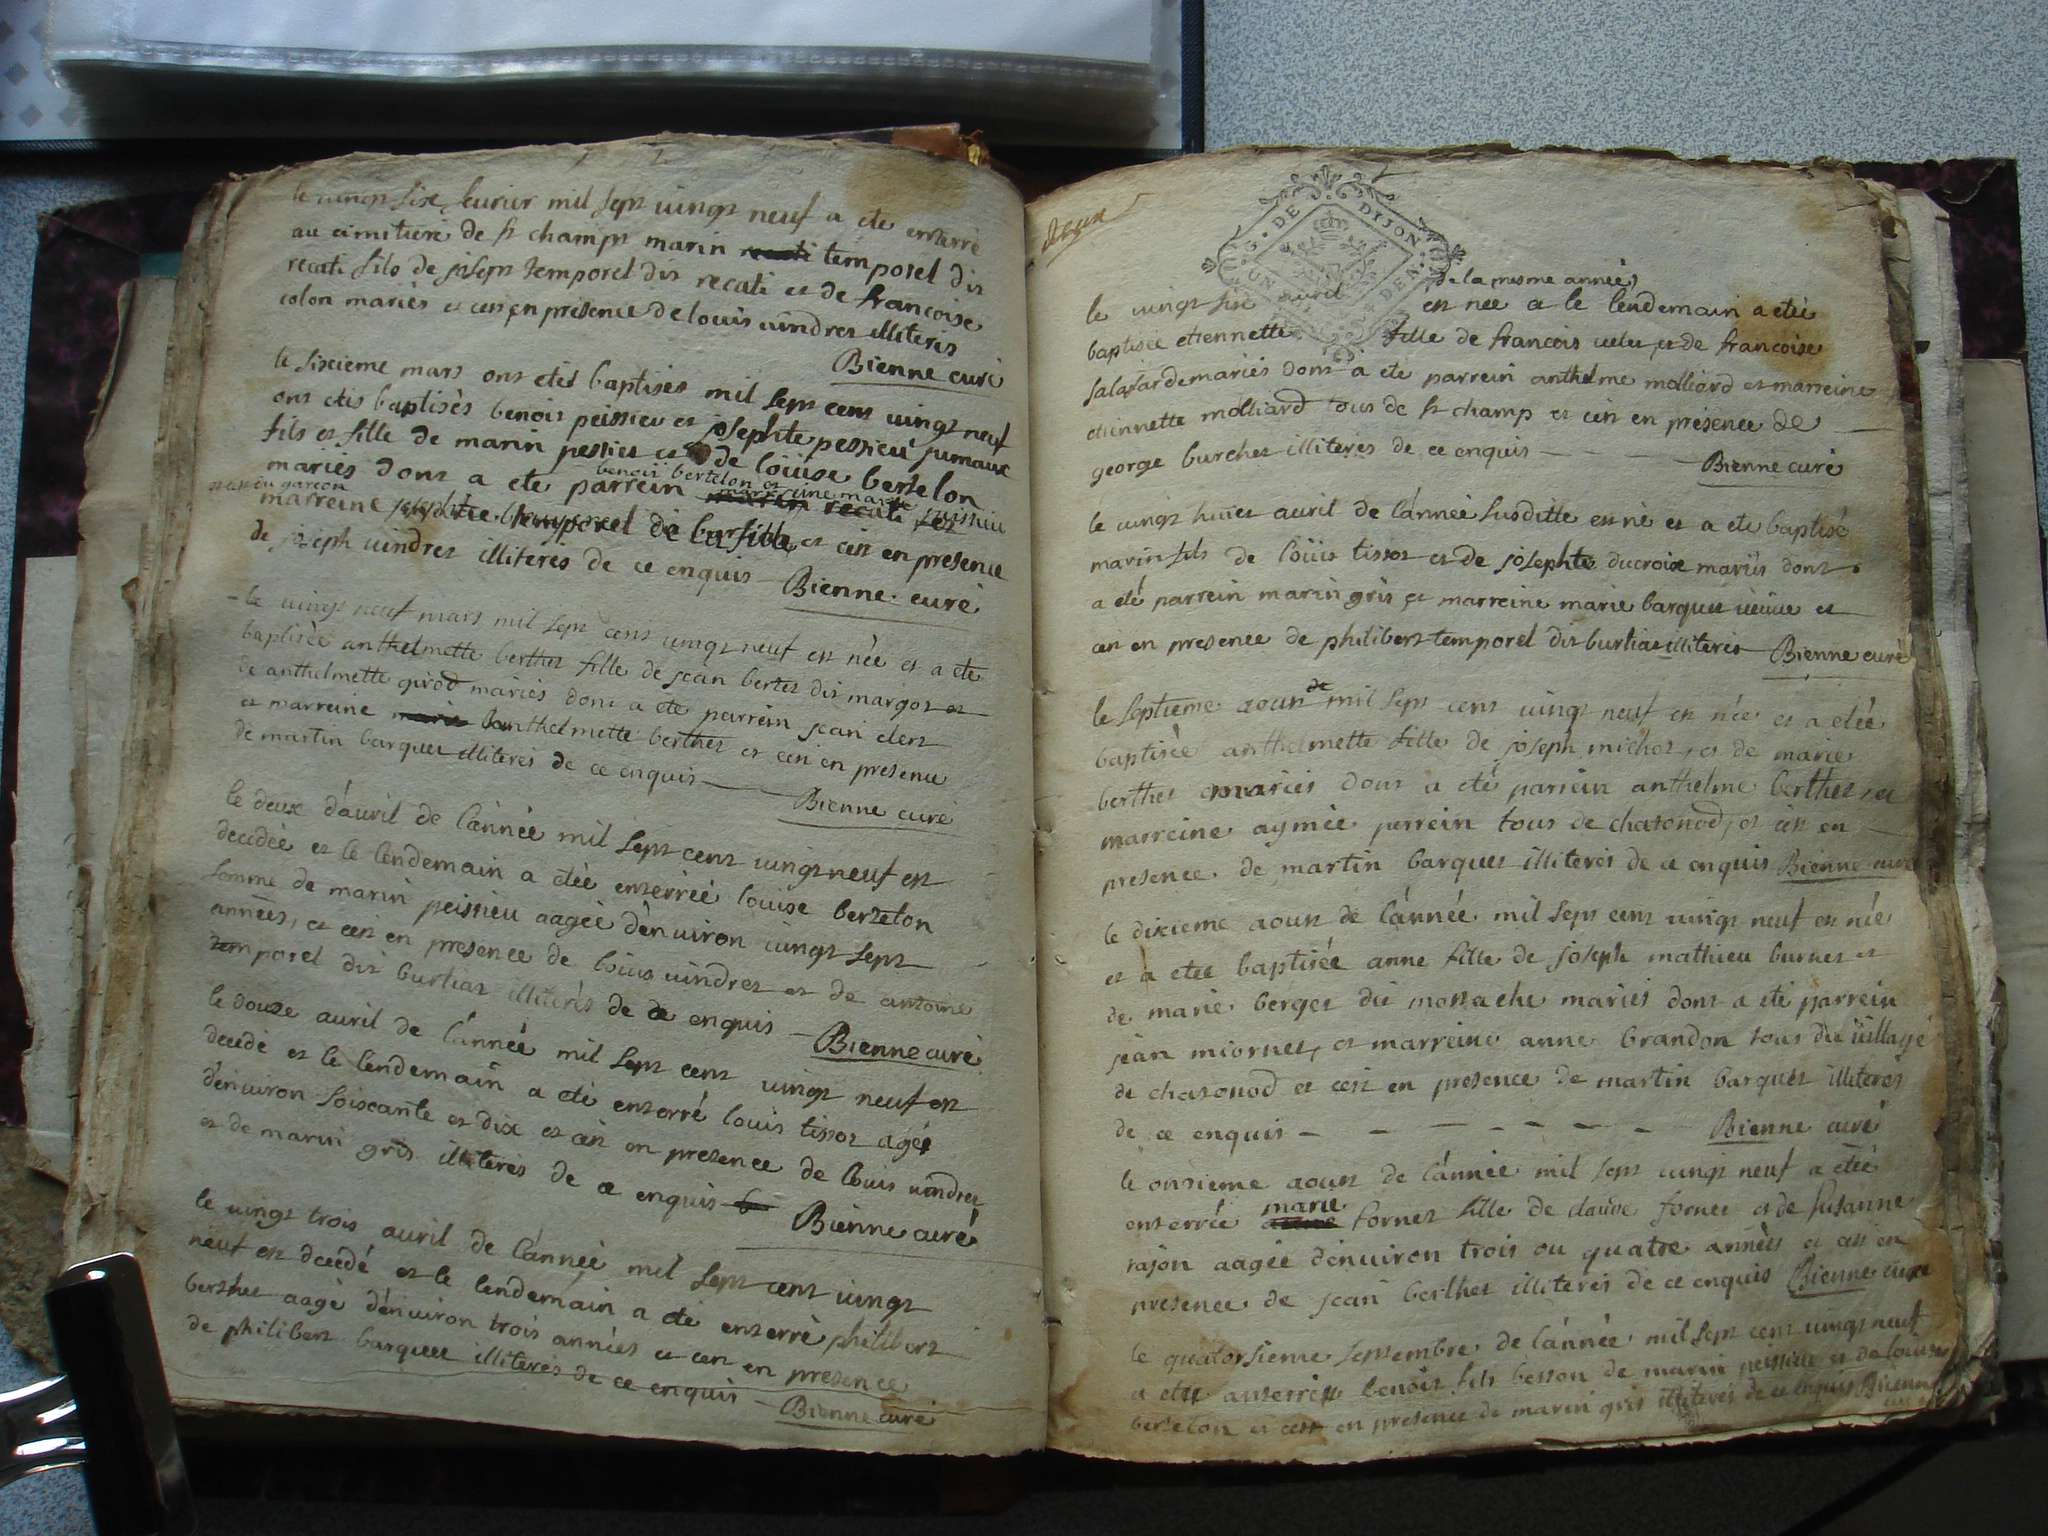 le vingt six feurier mil sept vingt neuf a ete enterré
au cimitiere de st champt marin temporel dit
recati fils de joseph temporel dit recati et de francoise
colon mariés et cest en presence de louis vindret illiteris
Bienne curé
le sixcieme mars ont etés baptisés mil sept cent vingt neuf
ont etés baptisés benoit peissieu et josephte pessieu jumaux
fils et fille de marin pessieu et de loüise bertelon
mariés dont a ete parrein benoit bertelon et
marreine marie peissieu
du garcon
marreine temporel de la fille et cest en presence
de joseph vindret illiterés de ce enquis Bienne curé
le vingt neuf mars mil sept cent vingt neuf est née et a ete
baptisée anthelmette berthet fille de jean bertet dit margot et
de anthelmette girod mariés dont a ete parrein jean clert
et marreine anthelmette berthet et cest en presence
de martin barquet illiterés de ce enquis
Bienne curé
le deux d'auril de l'année mil sept cent vingt neuf est
decedée et le lendemain a etée enterréé louise bertelon
femme de marin peissieu aagée d'enuiron vingt sept
années, et cest en presence de louis vindret et de antoine
temporel dit burliat illiterés de ce enquis
Bienne curé
le douze auril de l'année mil sept cent vingt neuf est
decedé et le lendemain a eté enterré louis tissot agéé
d'enuiron soixcante et dix et cest en presence de louis vindret
et de marin gris illiterés de ce enquis
Bienne curé
le vingt trois auril de l'année mil sept cent vingt
neuf est decedé et le lendemain a eté enterré philibert
berthet aagé d'enuiron trois années et cest en presence
de philibert barquet illiterés de ce enquis
Bienne curé
deux
G. DE DIJON
UN DEN.
de la mesme année
le vingt six auril est nee et le lendemain a etéé
baptisée etiennette fille de francois velet et de francoise
salasardemariés dont a ete parrein anthelme molliard et marreine
etiennette molliard tous de st champ et cest en presence de
george burchet illiterés de ce enquis
Bienne curé
le vingt huict auril de l'année susditte est né et a ete baptisé
marin fils de loüis tissot et de josephte ducroix mariés dont
a eté parrein marin gris et marreine marie barquet veuue et
cest en presence de philibert temporel dit burliat illiterés Bienne curé
le septieme aoust de mil sept cent vingt neuf est née et a etéé
baptisée anthelmette fille de joseph michot, et de marie
berthet mariés dont a eté parrein anthelme berthet, et
marreine aymée perrein tous de chasonod, et cest en
presence de martin barquet illiterés de ce enquis Bienne curé
le dixcieme aoust de l'année mil sept cent vingt neuf est née
et a etee baptisée anne fille de joseph mathieu burnet et
de marie berget dit moss ache mariés dont a eté parrein
jean miornet, et marreine anne brandon tous du uillage
de chasonod et cest en presence de martin barquet illiterés
de ce enquis
Bienne curé
le onsieme aoust de l'année mil sept vingt neuf a etéé
enterrée marie fornet fille de claude fornet et de susanne
rajon aagée d'enuiron trois ou quatre années et cest en
presence de jean berthet illiterés de ce enquis Bienne curé
le quatorsieme septembre de l'année mil sept cent vingt neuf
a eté anterré benoit fils besson de marin peissieu et de louise
bertelon et cest en presence de marin gris illiterés de ce enquis Bienne
curé